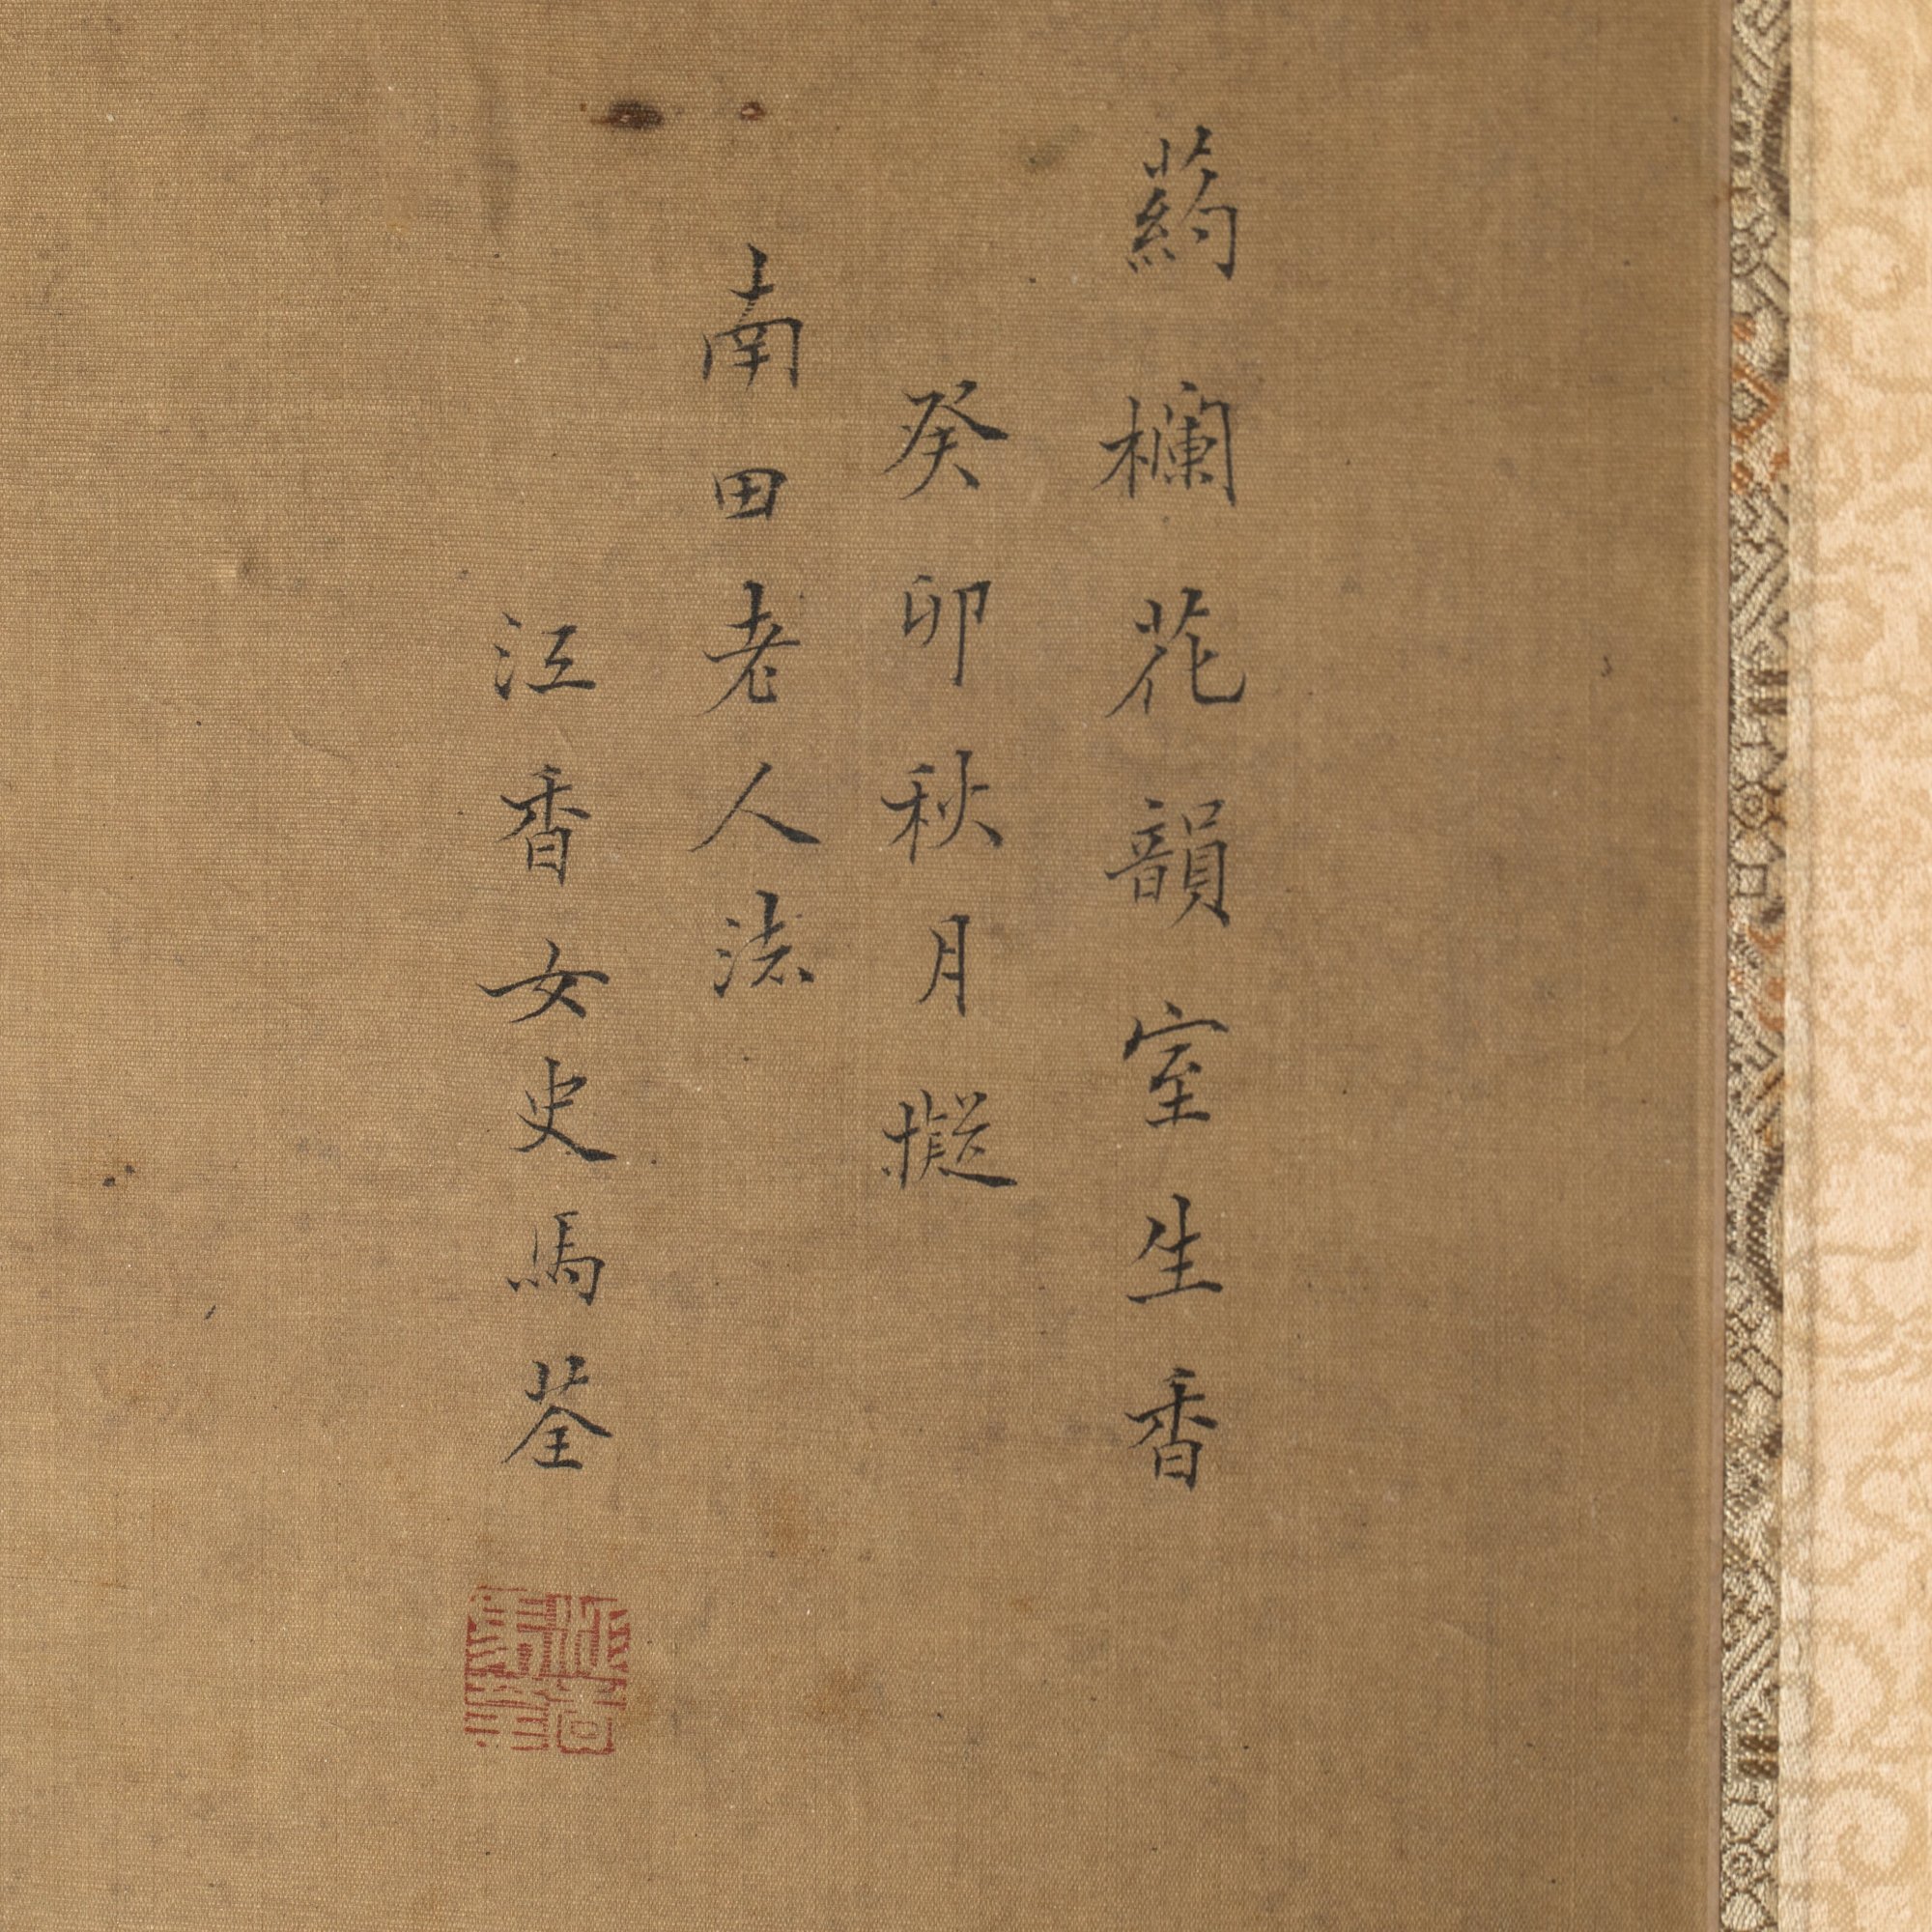 葯欄花韻室生香
癸卯秋月擬
南田老人法
江香女史馬荃